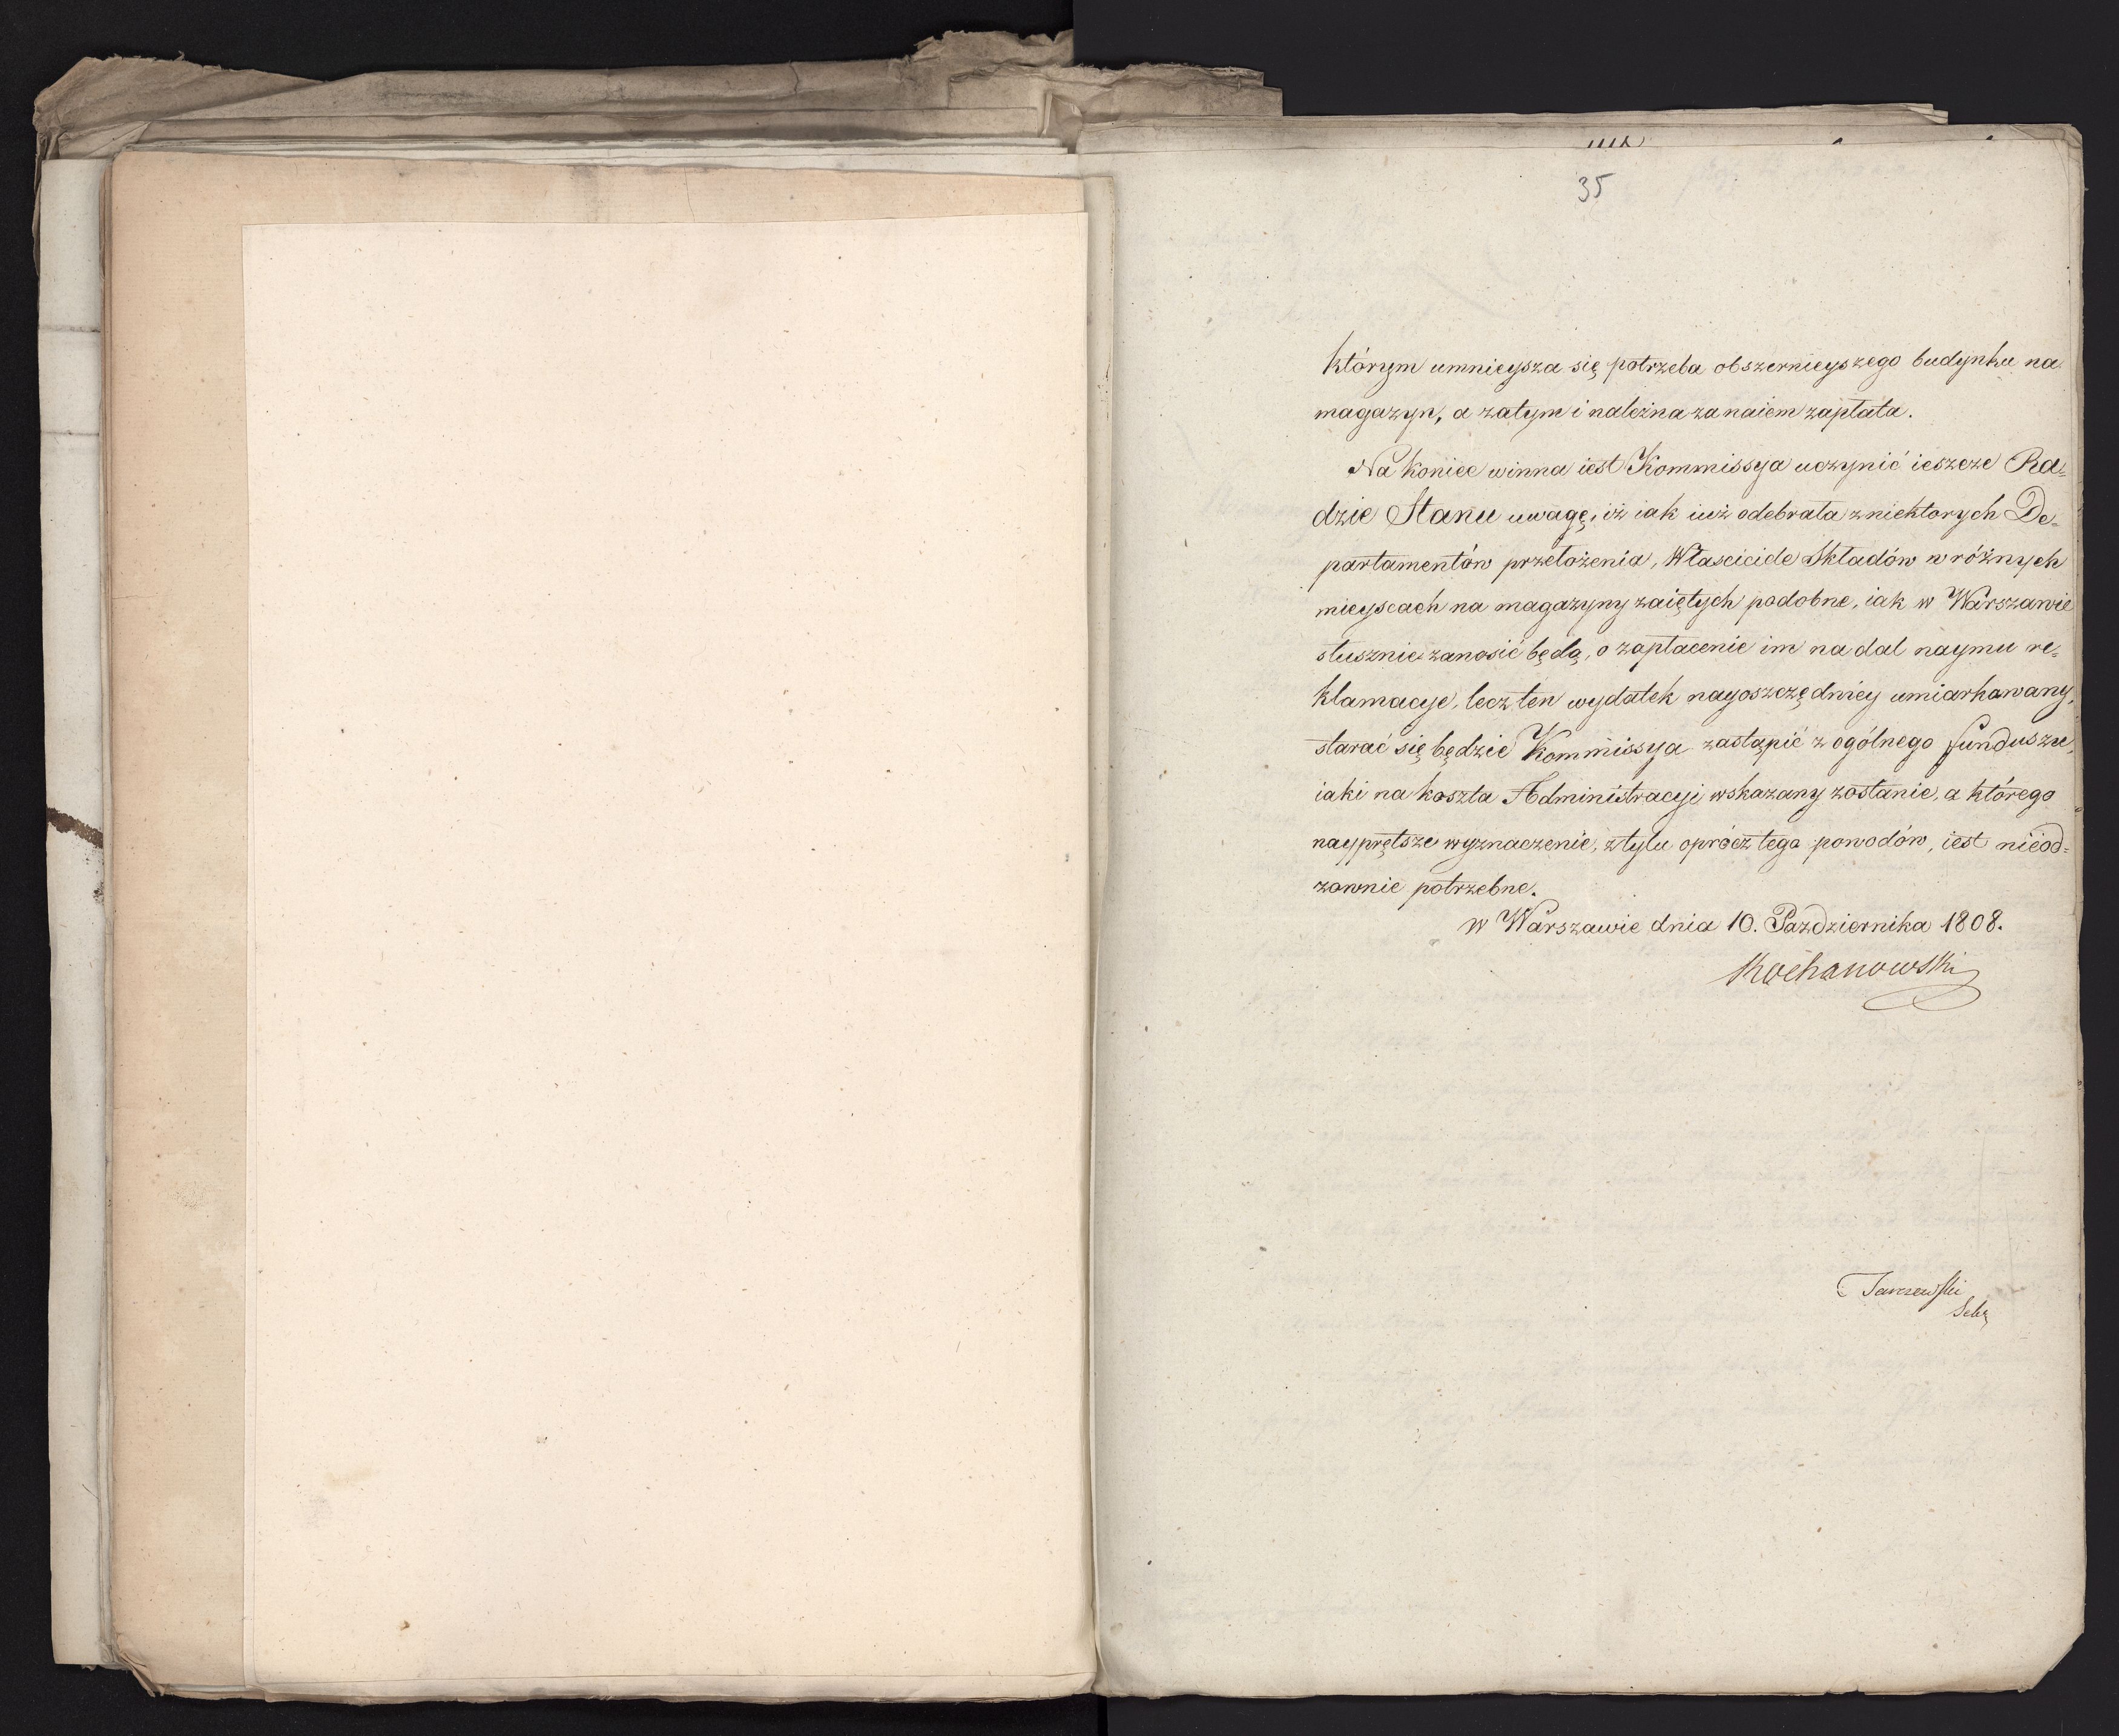 35
którym umnieysza się potrzeba obszernieyszego budynku na
magazyn, a zatym i należna za naiem zapłata.
Na koniec winna iest Kommissya uczynić ieszcze Ra=
dzie Stanu uwagę, iż iak iuż odebrała z niektorych De=
partamentów przełożenia, Własciciele Składów w różnych
mieyscach na magazyny zaiętych podobne, iak w Warszawie
słusznie zanosić będą, o zapłacenie im na dal naymu re=
klamacye, lecz ten wydatek nayoszczędniey umiarkowany,
starać się będzie Kommissya zastąpić z ogólnego funduszu,
iaki na koszta Administracyi wskazany zostanie, a którego
nayprętsze wyznaczenie, z tylu oprócz tego powodów, iest nieod=
zownie potrzebne.
w Warszawie dnia 10. Pazdziernika 1808.
Kochanowski